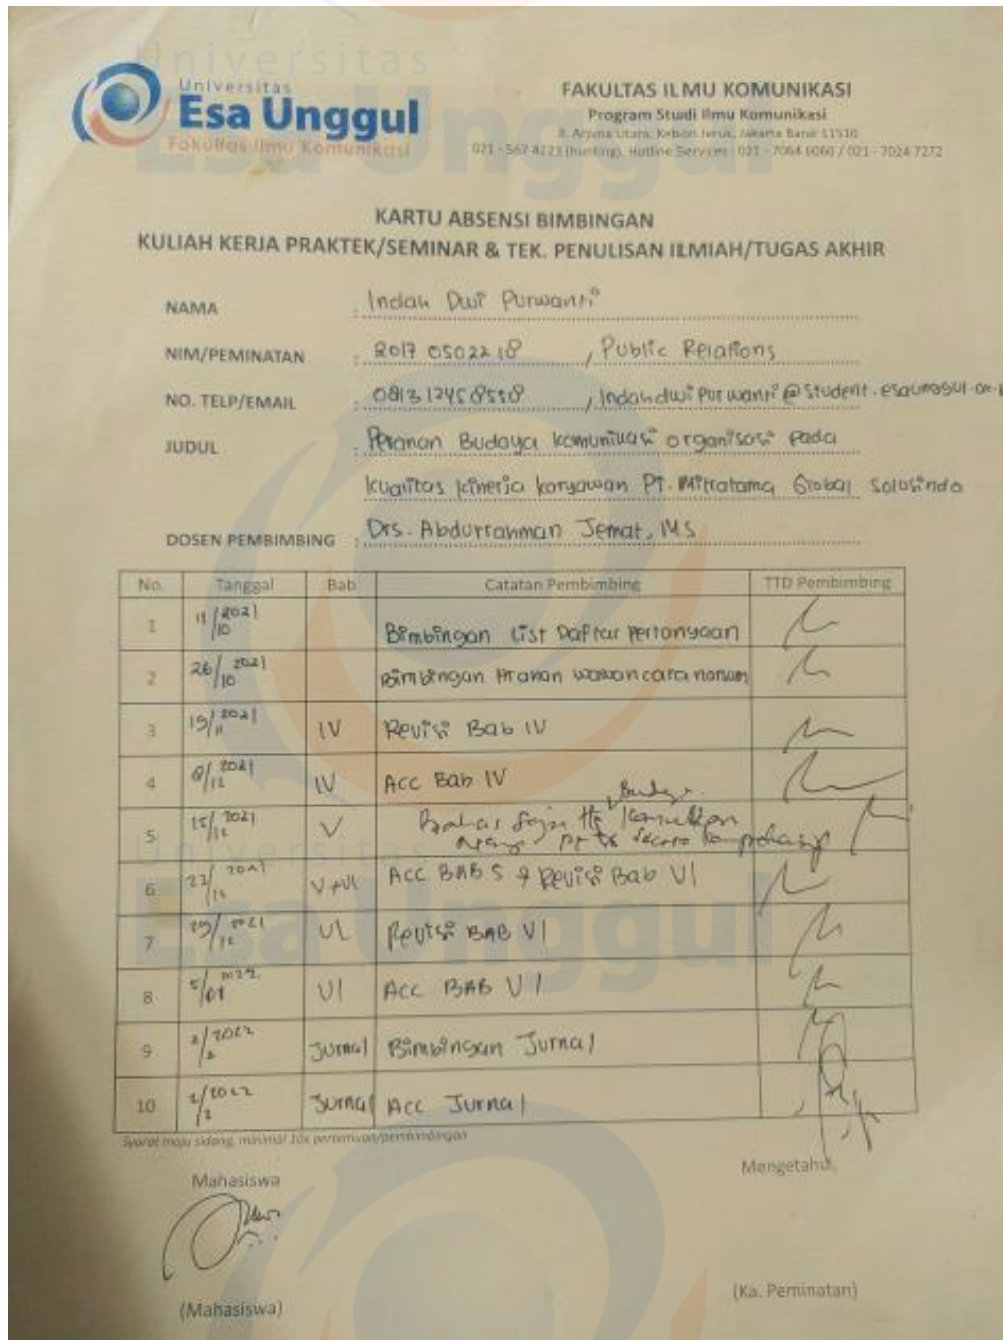 Universitas
Esa Unggul
Fakultas Ilmu Komunikasi
FAKULTAS ILMU KOMUNIKASI
Program Studi Ilmu Komunikasi
Jl. Arjuna Utara, Kebon Jeruk, Jakarta Barat 11510
021 - 567 4223 (hunting), Hotline Services : 021 - 7064 6060 / 021 - 7024 7272
KARTU ABSENSI BIMBINGAN
KULIAH KERJA PRAKTEK/SEMINAR & TEK. PENULISAN ILMIAH/TUGAS AKHIR
NAMA : Indah Dwi Purwanti
NIM/PEMINATAN : 2017 0502218 , Public Relations
NO. TELP/EMAIL : , Indahdwipurwanti@student.esaunggul.ac.
JUDUL : Peranan Budaya komunikasi organisasi Pada
kualitas kinerja karyawan PT. Mitratama Global Solusindo
DOSEN PEMBIMBING : Drs. Abdurrahman Jemat, MS
No. Tanggal Bab Catatan Pembimbing TTD Pembimbing
1 11/10 2021 Bimbingan List Daftar pertanyaan
2 26/10 2021 Bimbingan wawancara
3 19/11 2021 IV Revisi Bab IV
4 8/12 2021 IV Acc Bab IV
5 15/12 2021 V Bahas secara
6 22/12 2021 V+VI Acc BAB 5 & Revisi Bab VI
7 29/12 2021 VI Revisi BAB VI
8 5/01 2022 VI Acc BAB VI
9 2/2 2022 Jurnal Bimbingan Jurnal
10 2/2 2022 Jurnal Acc Jurnal
Syarat maju sidang, minimal 10x pertemuan/pembimbingan
Mahasiswa
Mengetahui,
(Mahasiswa)
(Ka. Peminatan)